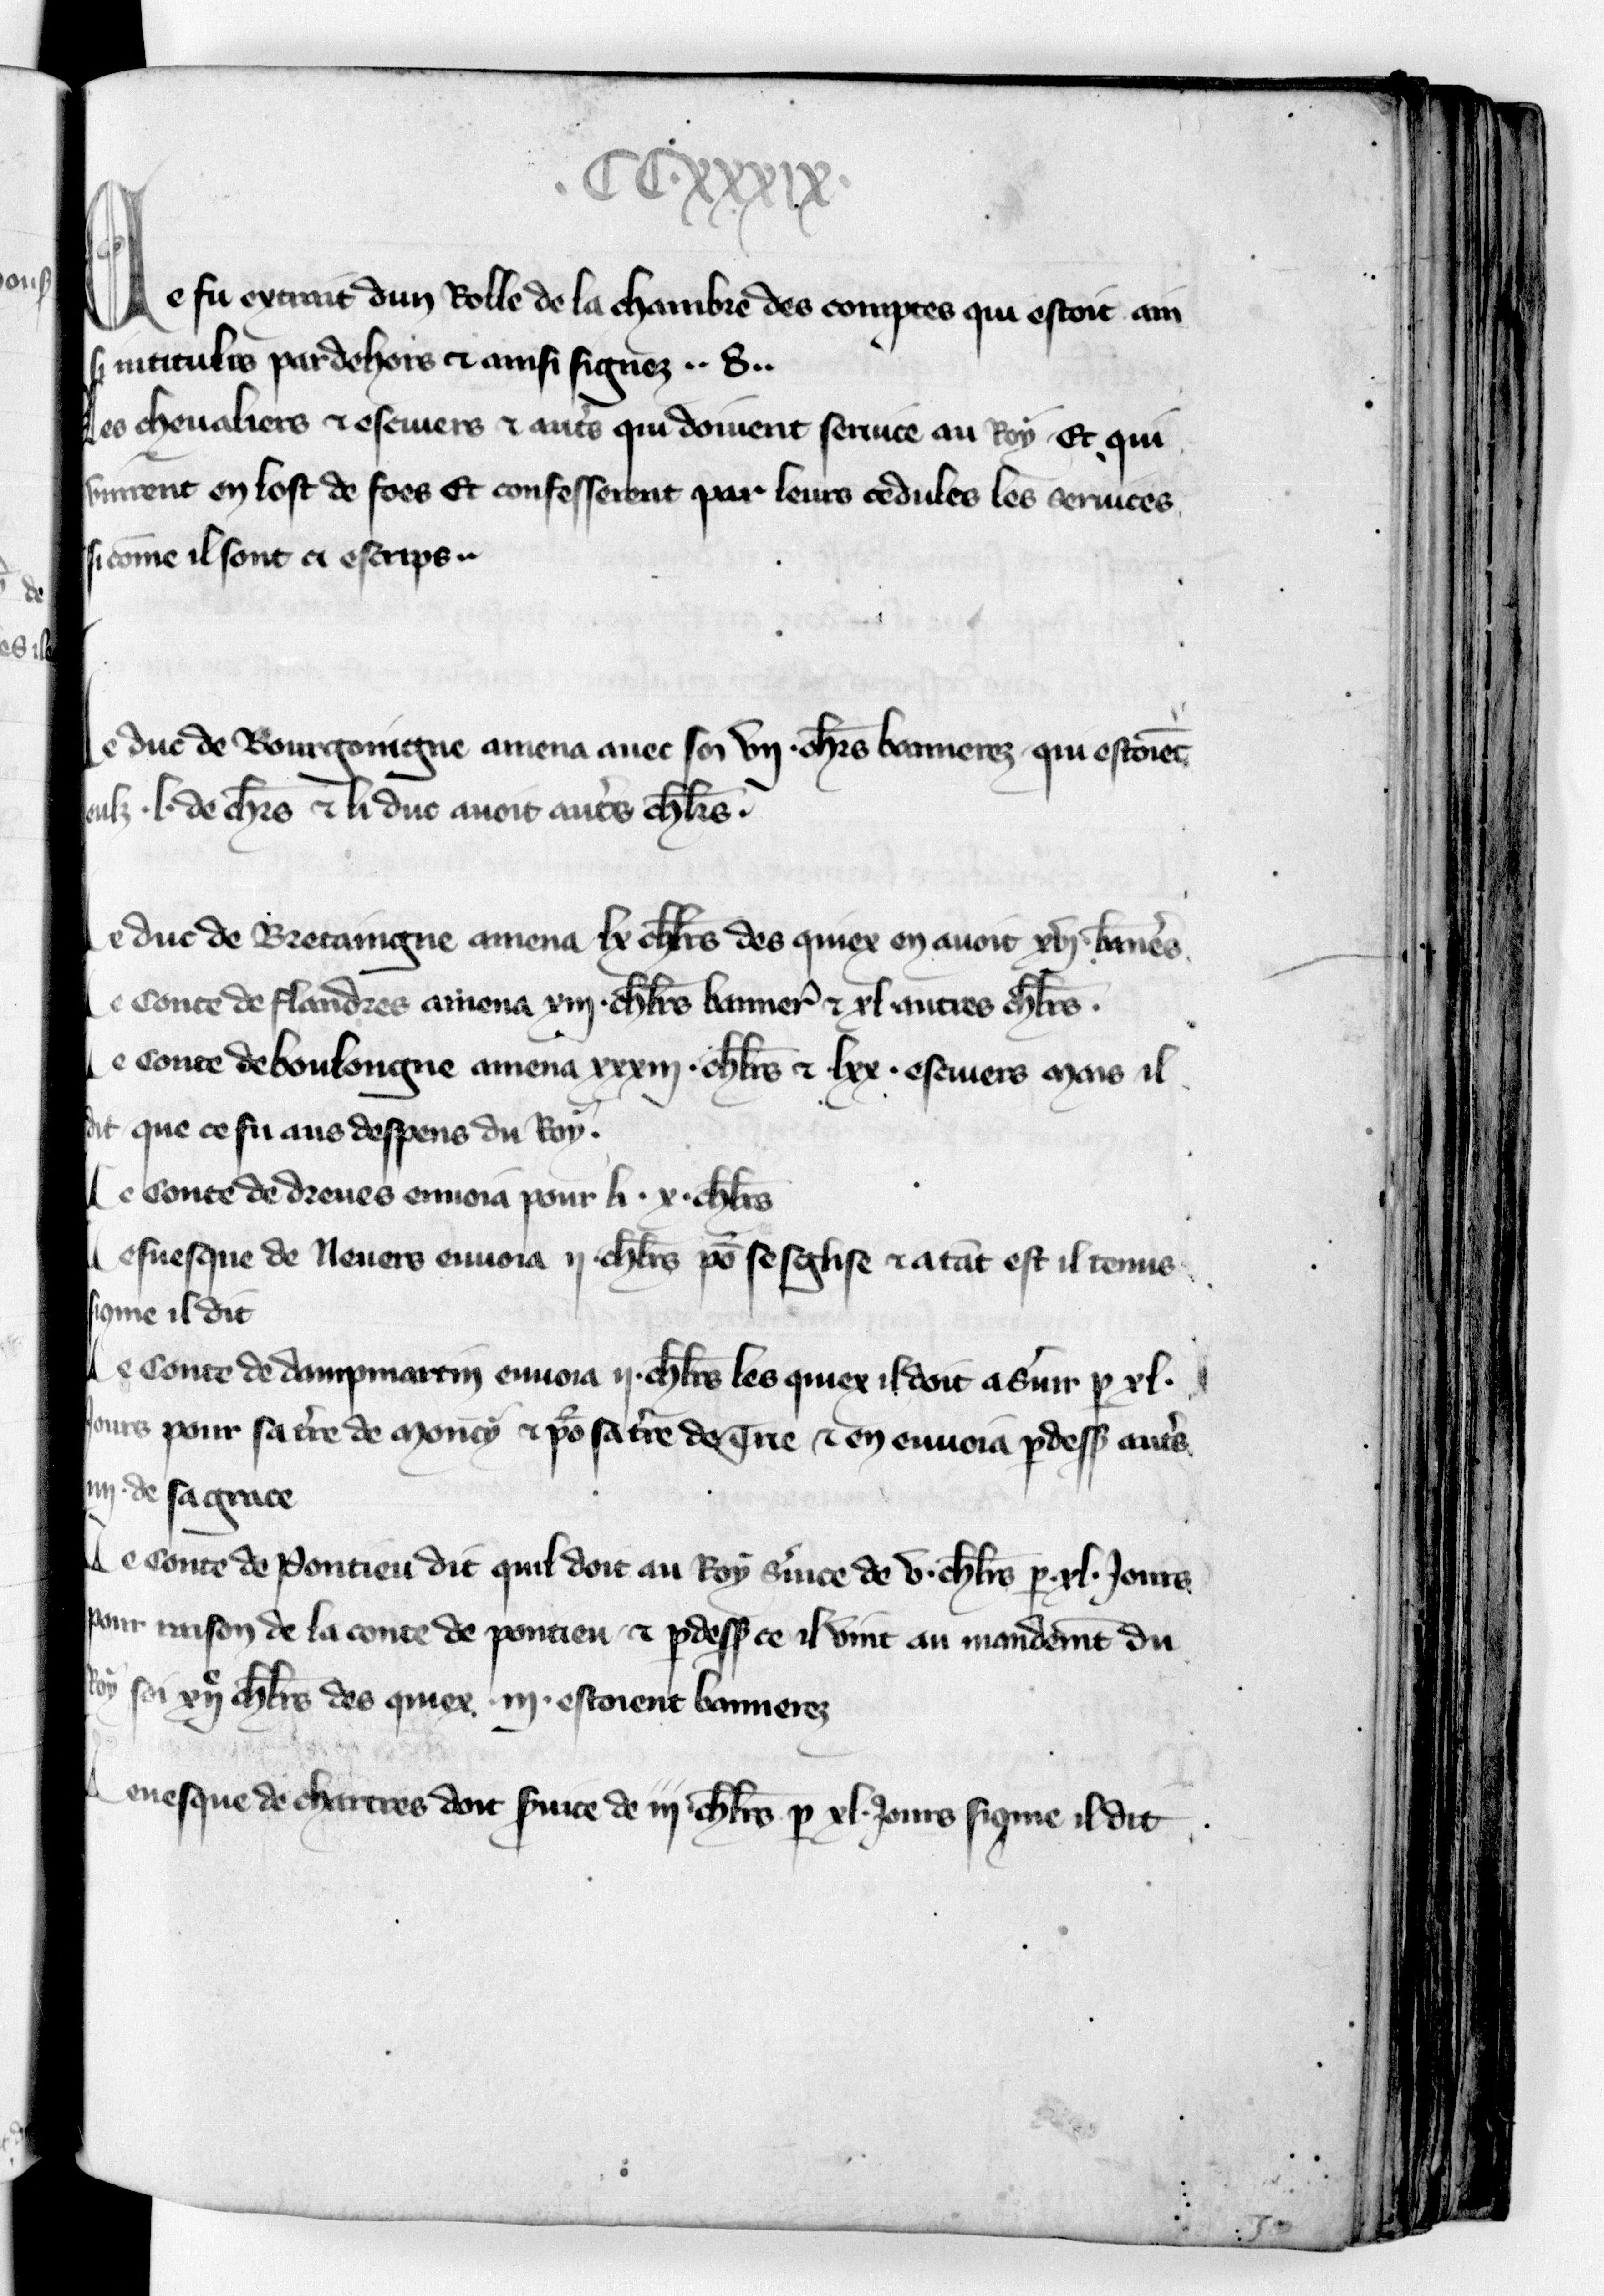 .CC.XXXIX.
Ce fu extrait dun Rolle de la chambre des comptes qui estoit ain
si intitules par dehors et ainsi signez .. S..
Les cheualiers et escuiers et autˢ qui doiuent seruice au Roy Et qui
vinrent en lost de foes Et confesserent par leurs cedules les seruices
si cōme il sont ci escrips..
Le duc de Bourgoingne amena auec soi vij. chrs banerez qui estoiēt
eulz .l. de chrs et li duc auoit autˢ chlrs.
Le duc de Bretaingne amena lx chlrs des quiex en auoit xvj. banes
Le Conte de flandres amena xiij. chlrs banner et xl autres chlrs.
Le Conte de boulongne amena xxxiij. chlrs et lxx. escuiers mais il
dit que ce fu aus despens du Roy.
Le Conte de dreues enuoia pour li . x. chlrs
Leuesque de Neuers enuoia ij. chlrs po seglise et a tāt est il tenus
sicme il dit
Le Conte de dampmartin enuoia ij. chlrs les quiex il doit a suir p xl.
Jours pour sa tre de Moncy et po sa tre de Trie et en enuoia pdess autˢ
iiij. de sa grace
Le Conte de Pontieu dit quil doit au Roy suice de v. chlrs p .xl. Jours
pour raison de la conte de pontieu et pdess ce il vint au mandemt du
Roy soi xije chlrs des quiex . iij. estoient bannerez
Leuesque de chartres doit suice de iij chlrs p xl. Jours sicme il dit